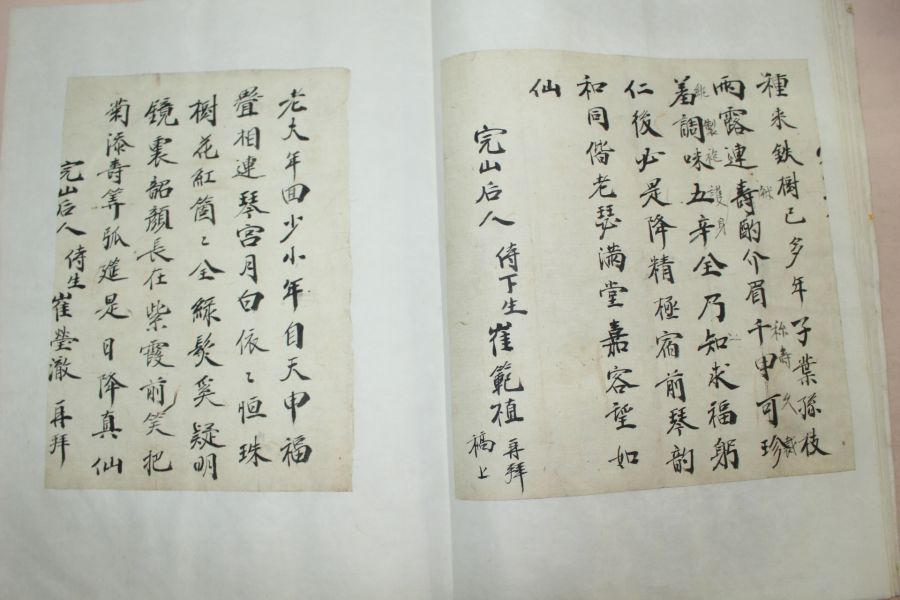 種来鉄樹已多年子葉孫枝
雨露連壽酌介眉千甲可珍
羞調味五辛全乃知求福躬
仁後必是降精極宿前琴韵
和同偕老瑟滿堂嘉客望如
仙
完山后人 侍下生 崔範植 再拜
稿上
老大年回少小年自天申福
疊相連琴宮月白依〻恒珠
樹花紅箇〻全綠髮奚疑明
鏡裏韶顏長在紫霞前笑把
菊添壽筭弧筵是日降真仙
完山后人 侍生 崔瑩澈 再拜